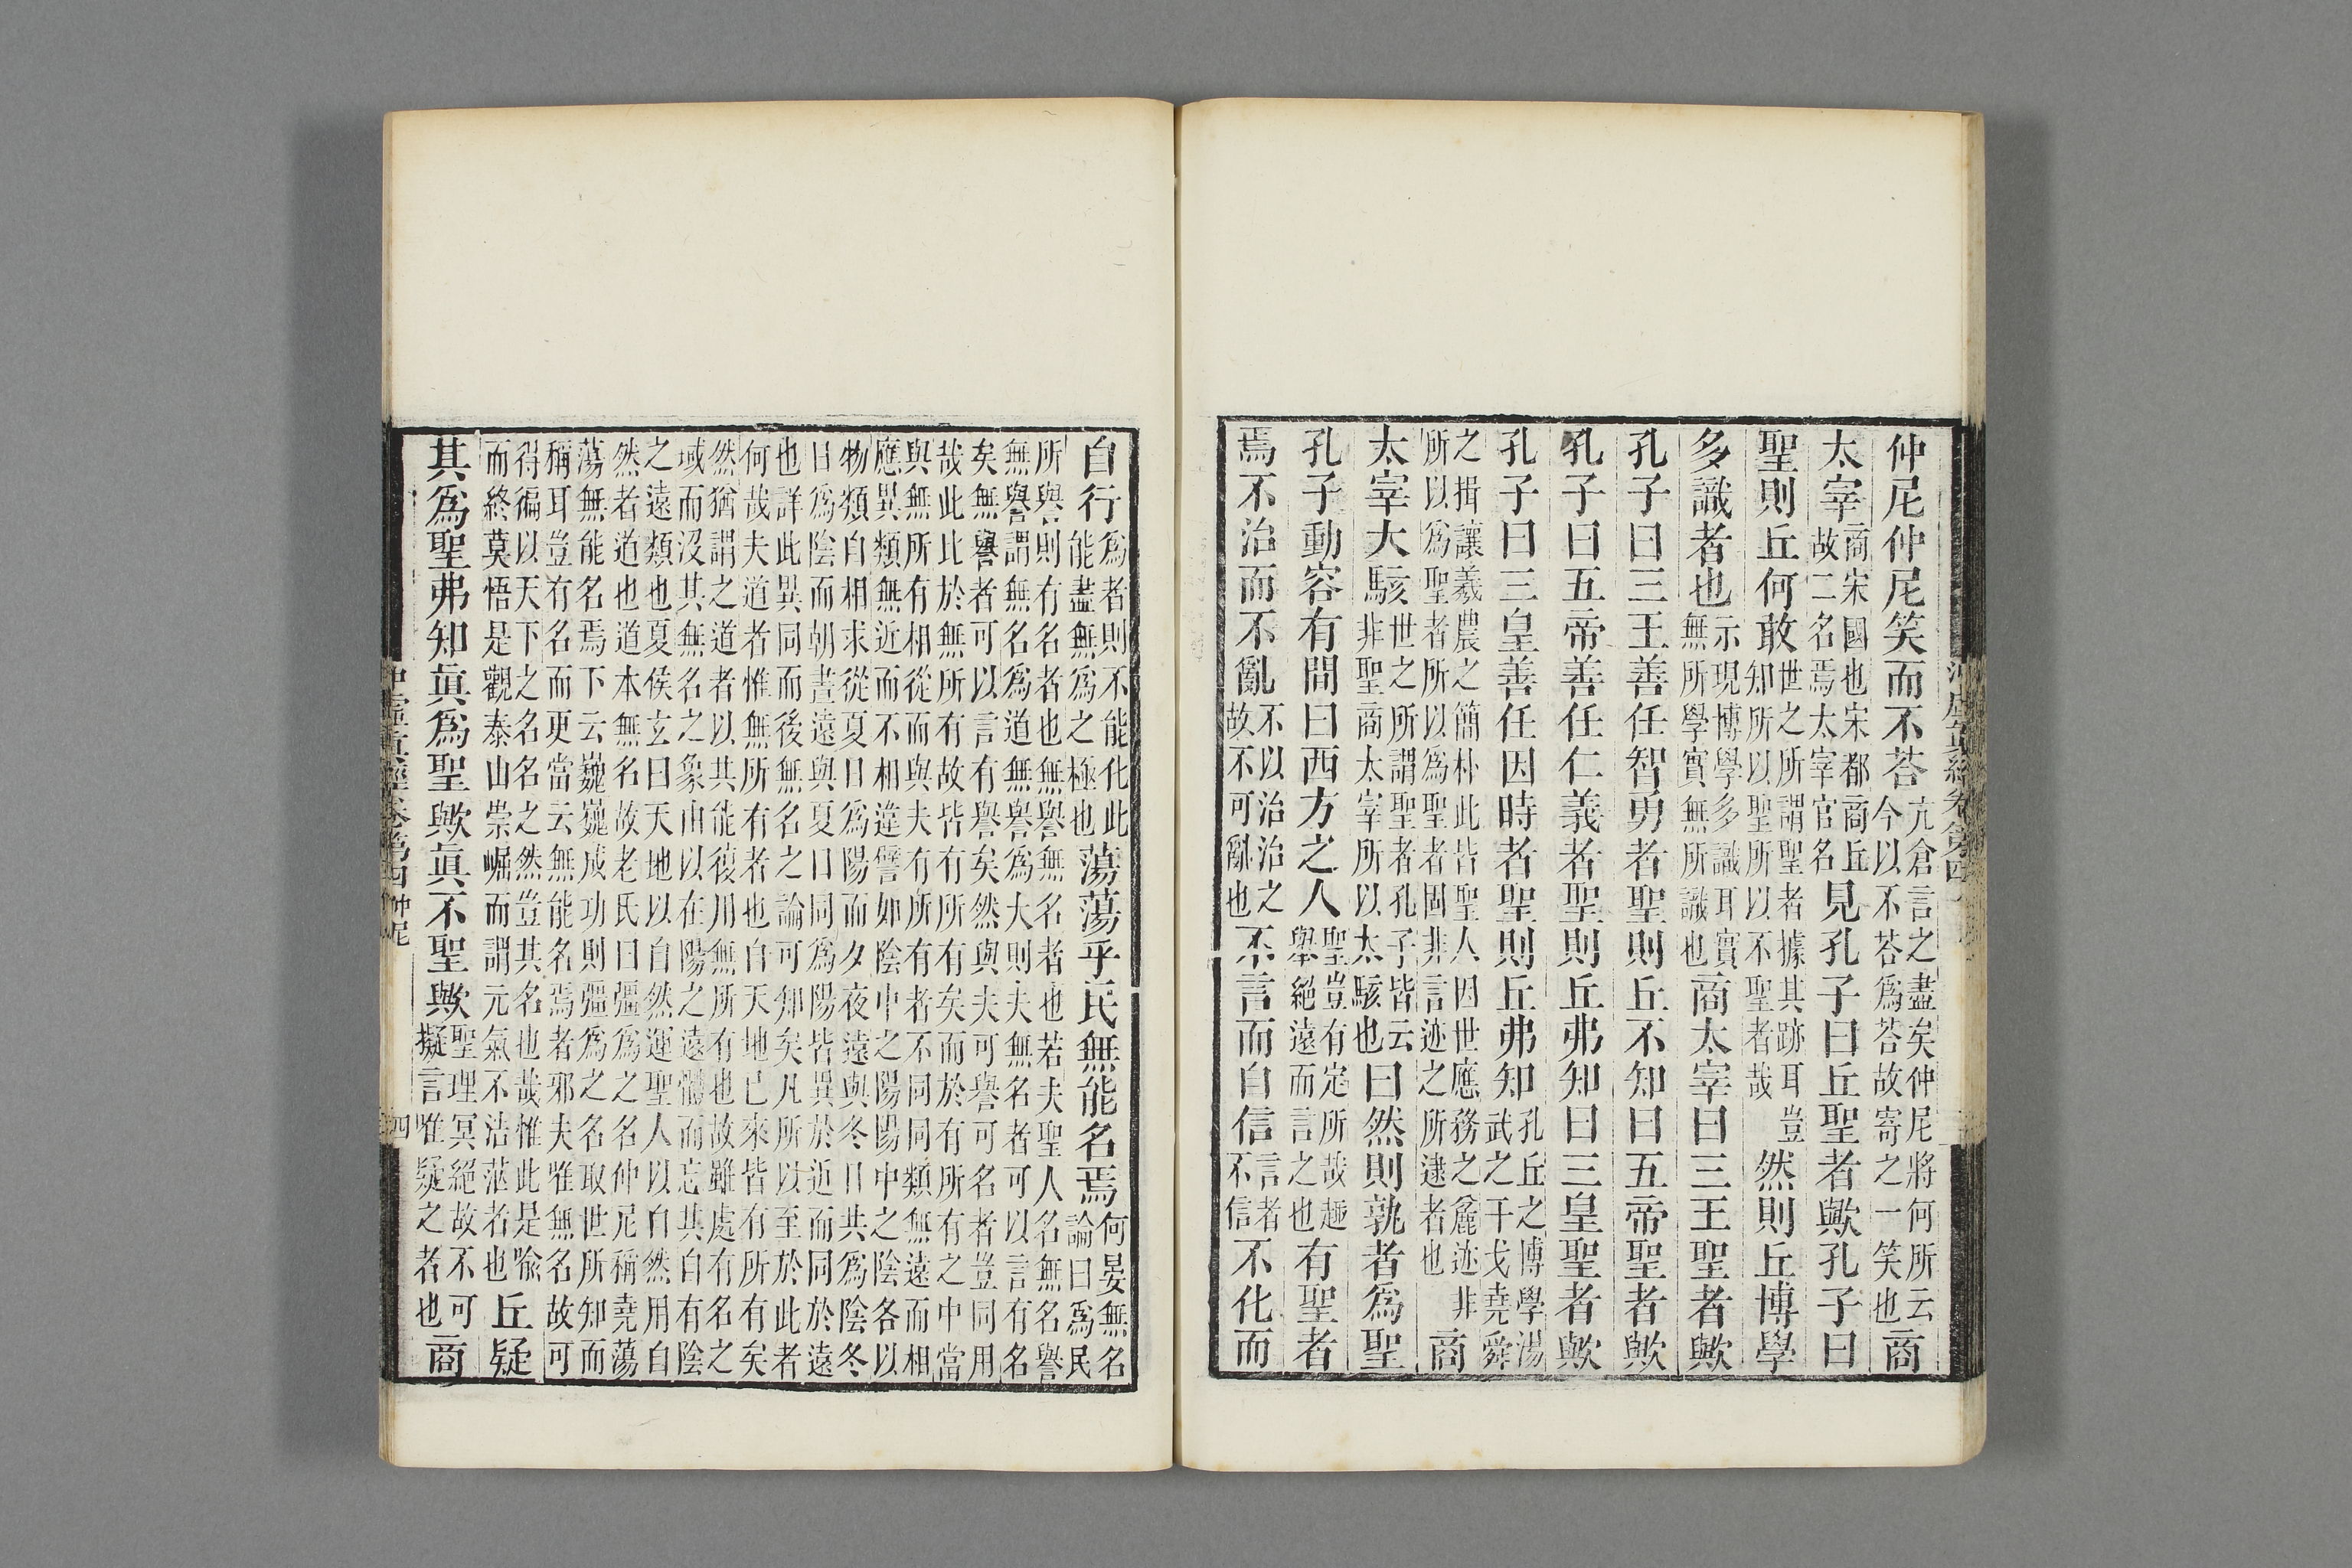 仲尼仲尼笑而不荅亢倉言之盡矣仲尼將何所云今以不荅爲荅故寄之一笑也商
太宰商宋國也宋都商丘故二名焉太宰官名見孔子曰丘聖者歟孔子曰
聖則丘何敢世之所謂聖者據其跡耳豈知所以聖所以不聖者哉然則丘博學
多識者也示現博學多識耳實無所學實無所識也商太宰曰三王聖者歟
孔子曰三王善任智勇者聖則丘不知曰五帝聖者歟
孔子曰五帝善任仁義者聖則丘弗知曰三皇聖者歟
孔子曰三皇善任因時者聖則丘弗知孔丘之博學湯武之干戈堯舜
之揖讓羲農之簡朴此皆聖人因世應務之麄迹非所以爲聖者所以爲聖者固非言迹之所逮者也商
太宰大駭世之所謂聖者孔子皆云非聖商太宰所以太駭也曰然則孰者爲聖
孔子動容有間曰西方之人聖豈有定所哉趣舉絕遠而言之也有聖者
焉不治而不亂不以治治之故不可亂也不言而自信言者不信不化而
自行爲者則不能化此能盡無爲之極也蕩蕩乎民無能名焉何晏無名論曰爲民
所譽則有名者也無譽無名者也若夫聖人名無名譽無譽謂無名爲道無譽爲大則夫無名者可以言有名
矣無譽者可以言有譽矣然與夫可譽可名者豈同用哉此比於無所有故皆有所有矣而於有所有之中當
與無所有相從而與夫有所有者不同同類無遠而相應異類無近而不相違譬如陰中之陽陽中之陰各以
物類自相求從夏日爲陽而夕夜遠與冬日共爲陰冬日爲陰而朝晝遠與夏日同爲陽皆異於近而同於遠
也詳此異同而後無名之論可知矣凡所以至於此者何哉夫道者惟無所有者也自天地已來皆有所有矣
然猶謂之道者以其能復用無所有也故雖處有名之域而沒其無名之象由以在陽之遠體而忘其自有陰
之遠類也夏侯玄曰天地以自然運聖人以自然用自然者道也道本無名故老氏曰彊爲之名仲尼稱堯蕩
蕩無能名焉下云巍巍成功則彊爲之名取世所知而稱耳豈有名而更當云無能名焉者邪夫唯無名故可
得徧以天下之名名之然豈其名也哉惟此是喻而終莫悟是觀泰山崇崛而謂元氣不浩茫者也丘疑
其爲聖弗知眞爲聖歟眞不聖歟聖理冥絕故不可擬言唯疑之者也商